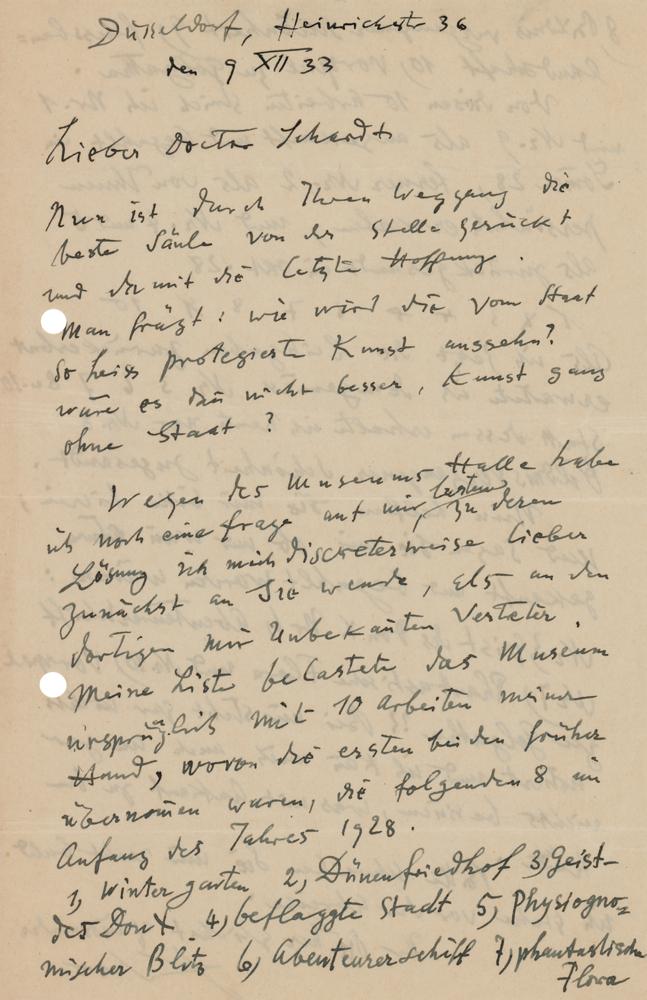 Düsseldorf, Heinrichstr 36
den 9 XII 33
Lieber Doctor Schardt
Nun ist durch Ihren Weggang die
beste Säule von der Stelle gerückt
und damit die letzte Hoffnung.
Man frägt: wie wird die vom Staat
so heiss protegierte Kunst aussehn?
wäre es dan nicht besser, Kunst ganz
ohne Staat?
Wegen des Museums Halle habe
ich noch eine frage auf mir lasten, zu deren
Lösung ich mich discreterweise lieber
zunächst an Sie wende, als an den
dortigen mir Unbekañten Vertreter.
Meine Liste belastete das Museum
ursprünglich mit 10 Arbeiten meiner
Hand, wovon die ersten beiden früher
übernom̃en waren, die folgenden 8 im
Anfang des Jahres 1928.
1, Wintergarten 2, Dünenfriedhof 3, Geist-
des Don X 4, beflaggte Stadt 5, Physiogno=
mischer Blitz 6, Abenteurerschiff 7, phantastische
Flora